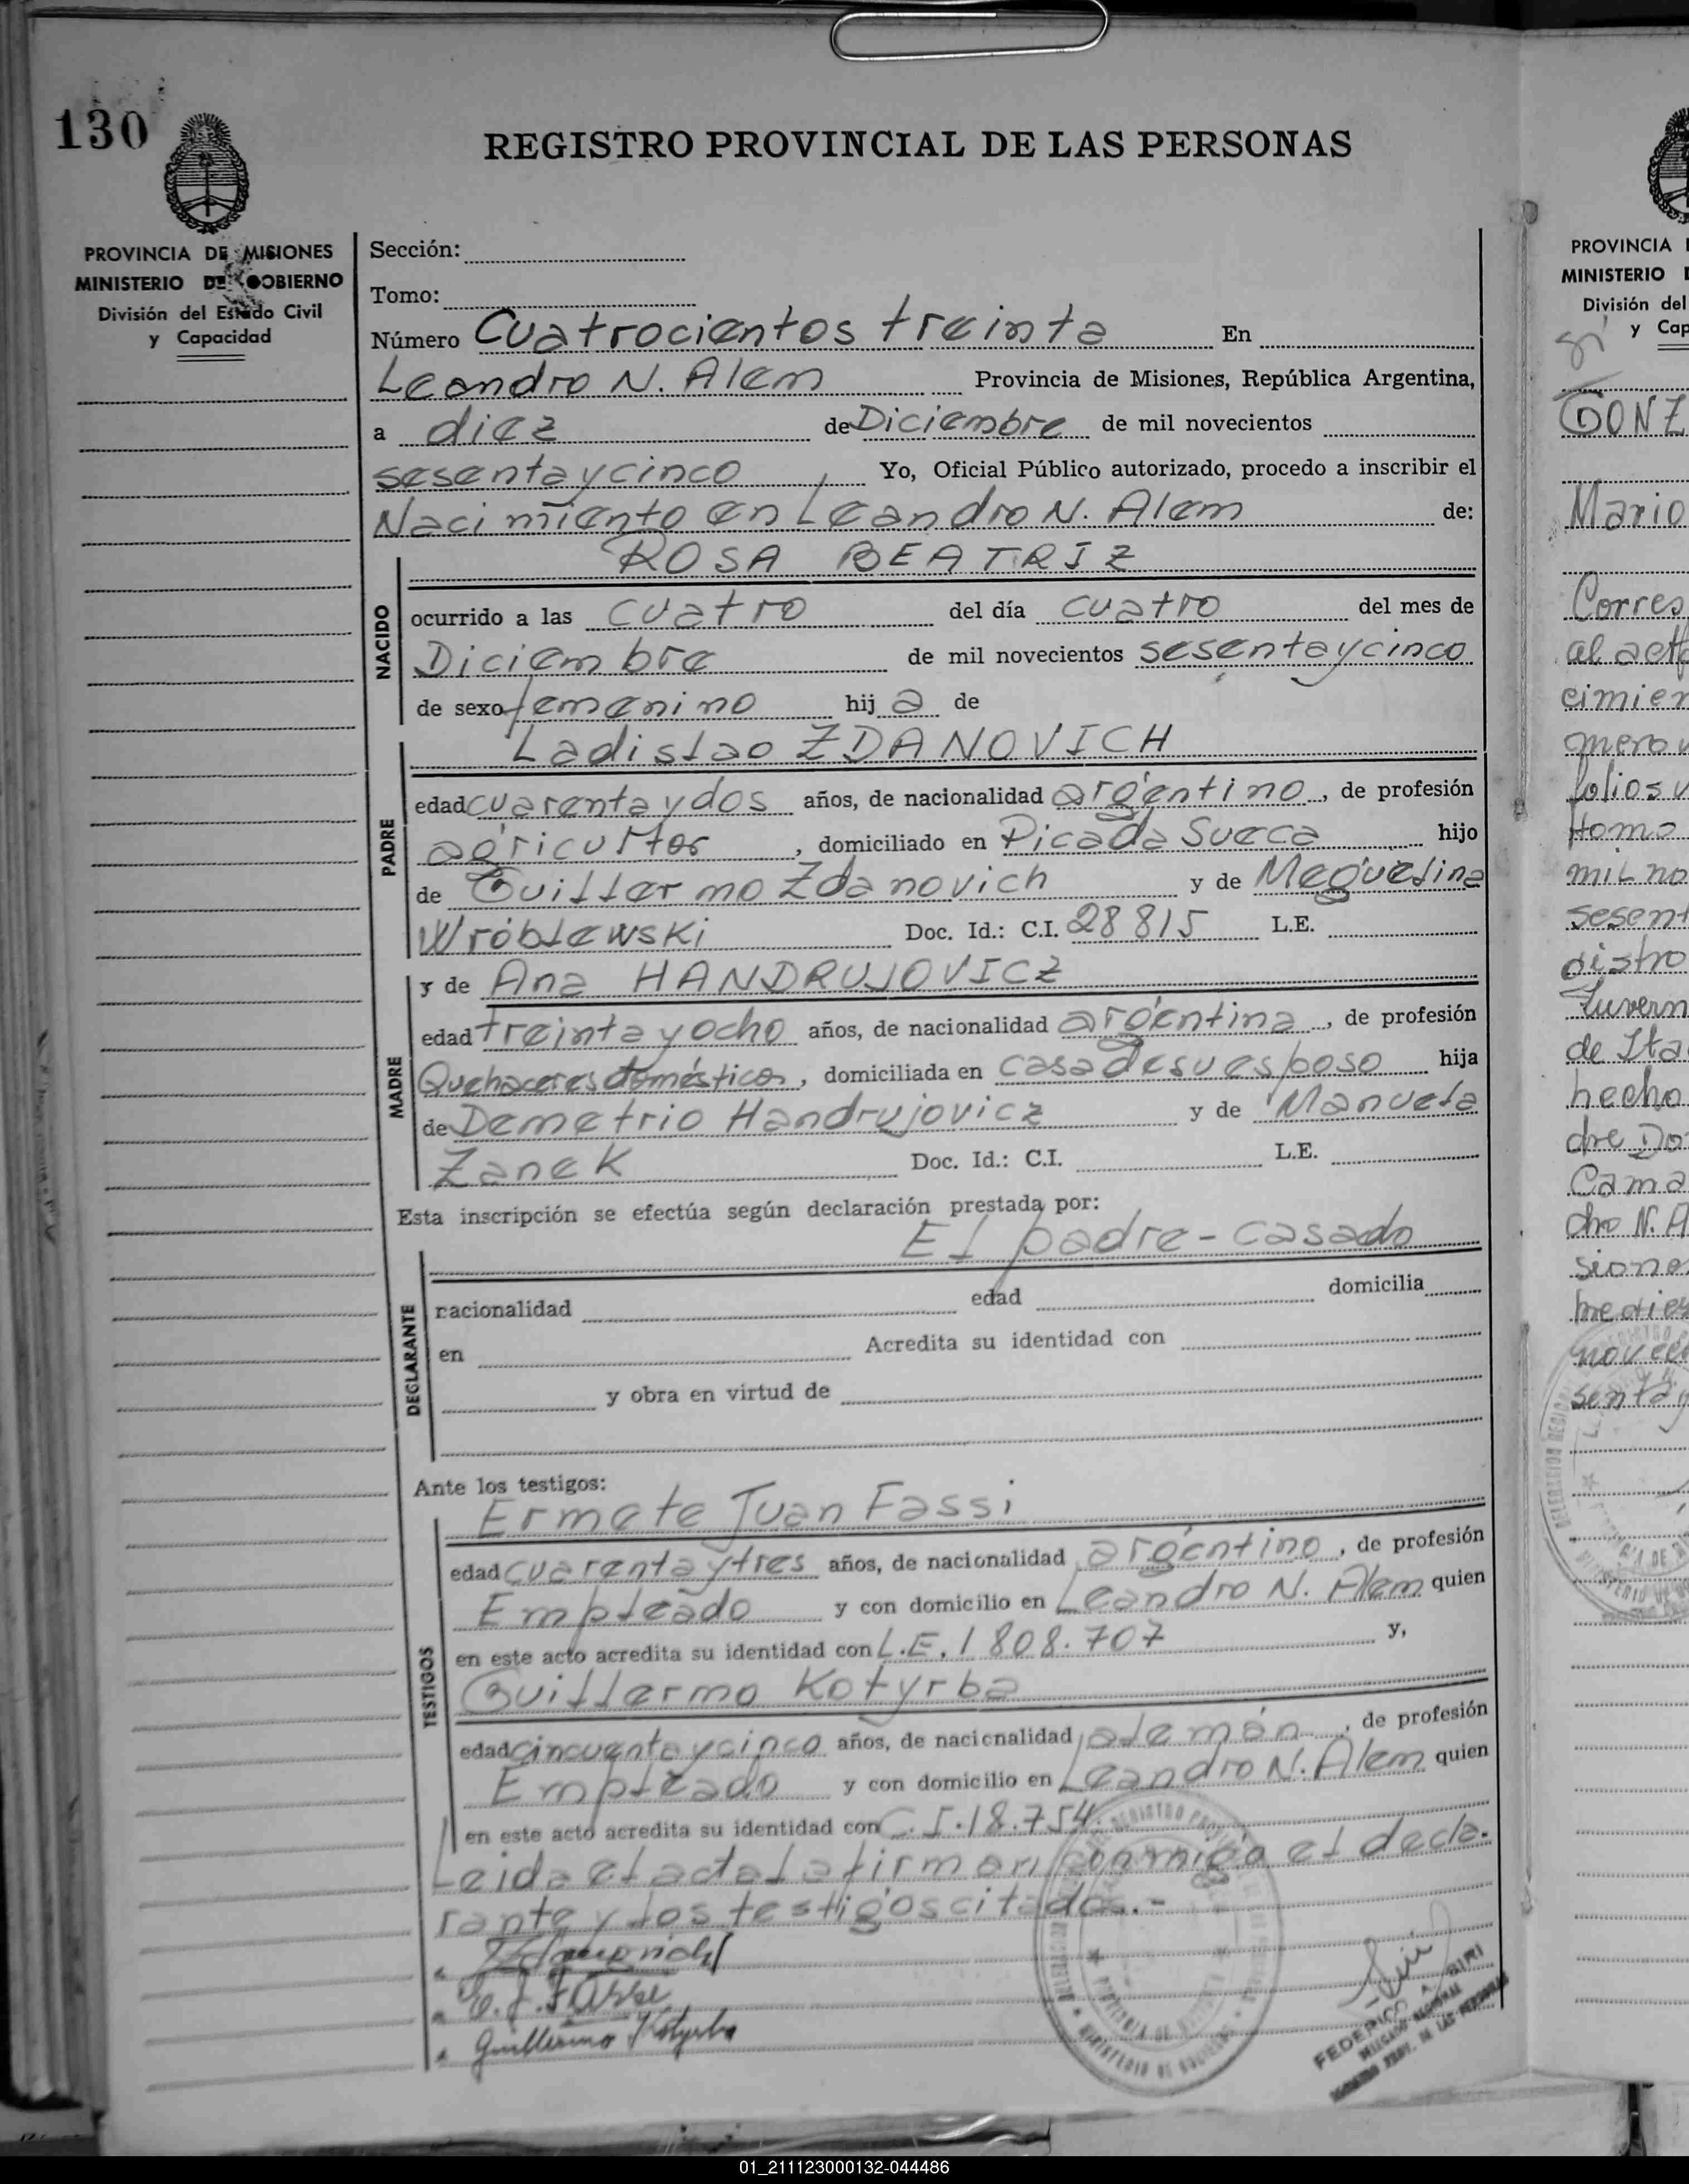 130
REGISTRO PROVINCIAL DE LAS PERSONAS
PROVINCIA DE MISIONES
MINISTERIO DE GOBIERNO
División del Estado Civil
y Capacidad
Sección:
Tomo:
Número Cuatrocientos treinta En
Leandro N. Alem Provincia de Misiones, República Argentina,
a diez de Diciembre de mil novecientos
sesentaycinco Yo, Oficial Público autorizado, procedo a inscribir el
Nacimiento en Leandro N. Alem de:
NACIDO
ROSA BEATRIZ
ocurrido a las cuatro del día cuatro del mes de
Diciembre de mil novecientos sesentaycinco
de sexo femenino hij a de
PADRE
Ladislao ZDANOVICH
edad cuarentaydos años, de nacionalidad argentino, de profesión
agricultor, domiciliado en Picada Sueca hijo
de Guillermo Zdanovich y de Meguelina
Wróblewski Doc. Id.: C.I. 28815 L.E.
MADRE
y de Ana HANDRUJOVICZ
edad treinta y ocho años, de nacionalidad argentina, de profesión
Quehaceres domésticos, domiciliada en casa de su esposo hija
de Demetrio Handrujovicz y de Manuela
Zanek Doc. Id.: C.I. L.E.
Esta inscripción se efectúa según declaración prestada por:
DECLARANTE
El padre - casado
nacionalidad edad domicilia
en Acredita su identidad con
y obra en virtud de
Ante los testigos:
TESTIGOS
Ermete Juan Fassi
edad cuarentaytres años, de nacionalidad argentino, de profesión
Empleado y con domicilio en Leandro N. Alem quien
en este acto acredita su identidad con L.E. 1808.707 y,
Guillermo Kotyrba
edad cincuentaycinco años, de nacionalidad alemán, de profesión
Empleado y con domicilio en Leandro N. Alem quien
en este acto acredita su identidad con C.I.18.754.
Leida el acta la firman conmigo el decla-
rante y los testigos citados.-
Zdanovich
E. J. Fassi
Guillermo Kotyrba
FEDERICO A. SIRI
DELEGADO REGIONAL
REGISTRO PROV. DE LAS PERSONAS
PROVINCIA
MINISTERIO
División del
y Cap
GONZ
Mario
Corres
al act
cimien
mero
folios
tomo
mil no
sesent
gistro
de Ita
hecho
dre Do
Cama
dro N. A
sione
novec
senta y
01_211123000132-044486